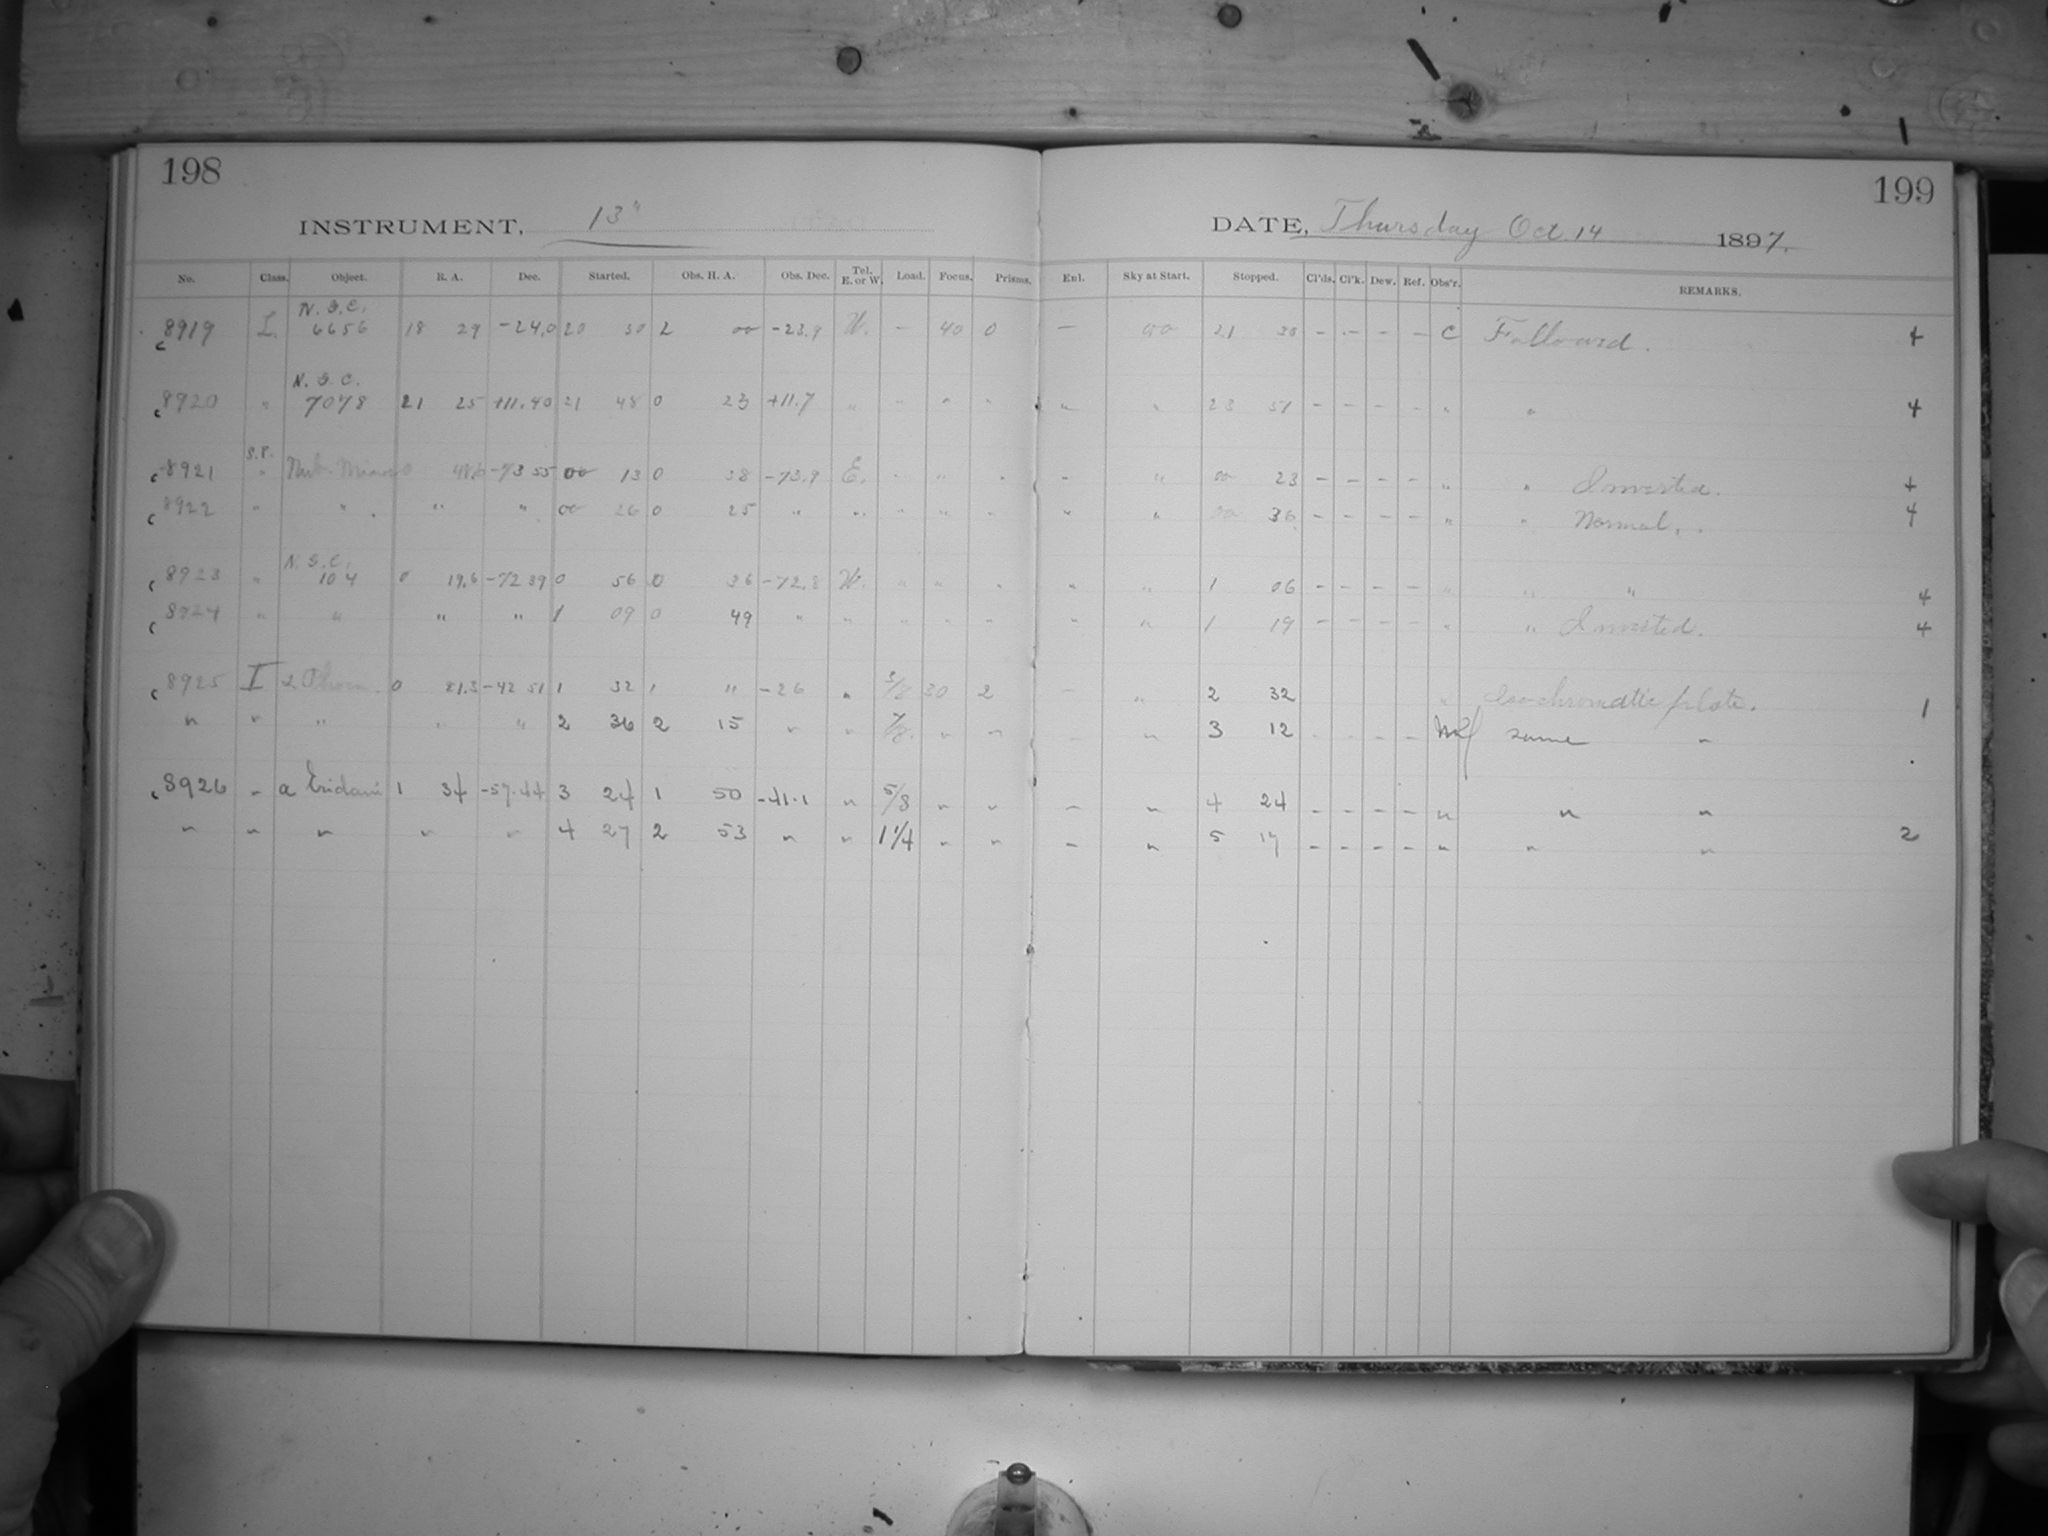 198
INSTRUMENT, 13"
No. Class. Object. R. A. Dec. Started. Obs. H. A. Obs. Dec. Tel. E. or W. Load. Focus. Prisms.
N. G. C.
8919 L. 6656 18 29 -24.0 20 30 2 00 -23.9 W. - 40 0
N. G. C.
8920 " 7078 21 25 +11.40 21 48 0 23 +11.7 " " " "
S.P.
8921 " Nub. Minor 0 48.6 -73 55 00 13 0 38 -73.9 E. " " "
8922 " " " " 00 26 0 25 " " " " "
N. G. C.
8923 " 104 0 19.6 -72 39 0 56 0 36 -72.8 W. " " "
8924 " " " " 1 09 0 49 " " " " "
8925 I 2 Phoen. 0 21.3 -42 51 1 32 1 11 -26 " 5/8 30 2
" " " " " 2 36 2 15 " " 7/8 " "
8926 " a Eridani 1 34 -57.44 3 24 1 50 -41.1 " 5/8 " "
" " " " " 4 27 2 53 " " 1 1/4 " "
199
DATE, Thursday Oct. 14 1897.
Enl. Sky at Start. Stopped. Cl'ds. Cl'k. Dew. Ref. Obs'r. REMARKS.
- 00 21 30 - - - - C Followed. 4
" " 23 51 - - - - " " 4
" " 00 23 - - - - " " Inverted. 4
" " 00 36 - - - - " " Normal. 4
" " 1 06 - - - - " " " 4
" " 1 19 - - - - " " Inverted. 4
- " 2 32 " Isochromatic plate. 1
- " 3 12 - - - - same "
- " 4 24 - - - - " " "
- " 5 17 - - - - " " " 2